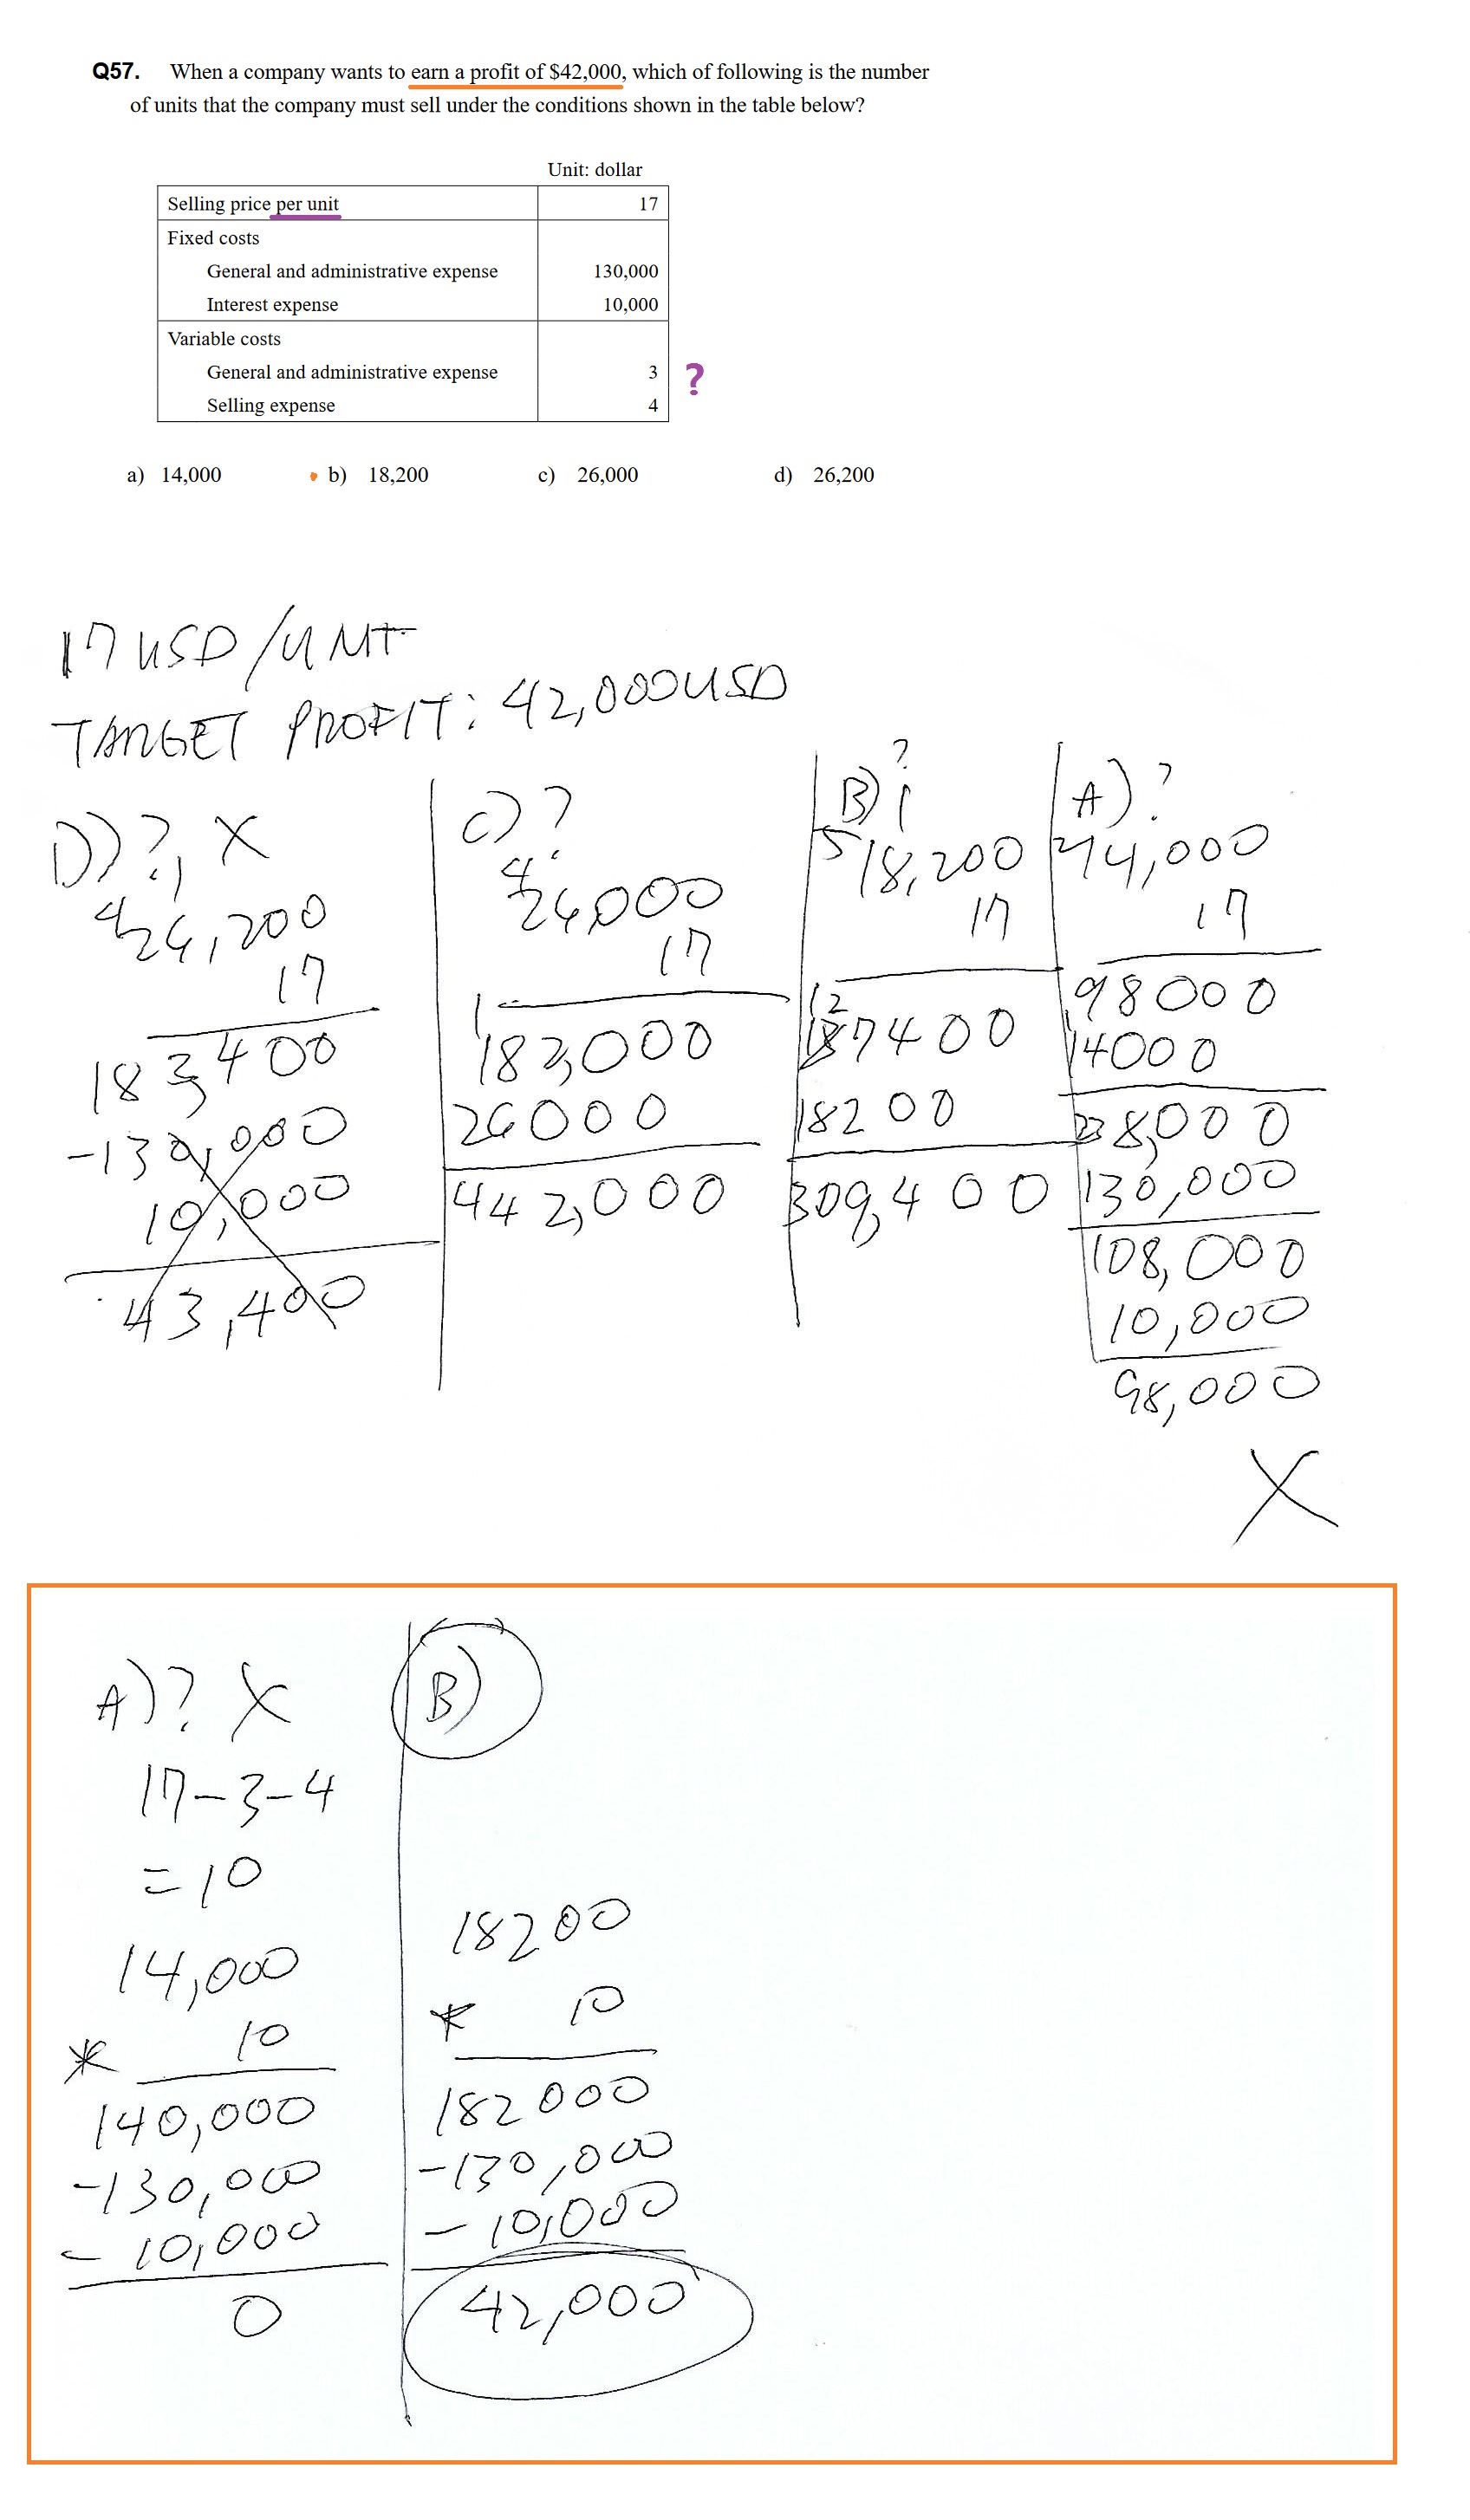 Q57. When a company wants to earn a profit of $42,000, which of following is the number
of units that the company must sell under the conditions shown in the table below?
Unit: dollar
Selling price per unit 17
Fixed costs
General and administrative expense 130,000
Interest expense 10,000
Variable costs
General and administrative expense 3 ?
Selling expense 4
a) 14,000 b) 18,200 c) 26,000 d) 26,200
17 USD/UNIT
TARGET PROFIT: 42,000USD
D)? X
4
26,200
17
183,400
-130,000
10,000
43,400
C)?
4
26,000
17
1
182,000
26000
442,000
B)?
5
18,200
17
12
7400
18200
309,400
A)?
2
14,000
17
98000
14000
238,000
130,000
108,000
10,000
98,000
X
A)? X
17-3-4
=10
14,000
* 10
140,000
-130,000
- 10,000
0
B)
18200
* 10
182000
-130,000
- 10,000
42,000